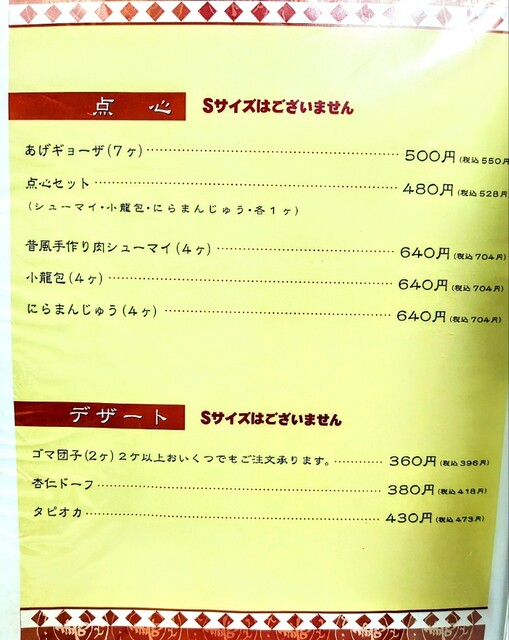 点 心 Sサイズはございません
あげギョーザ(7ヶ) 500円(税込550円
点心セット 480円(税込528円
(シューマイ・小龍包・にらまんじゅう・各1ヶ)
昔風手作り肉シューマイ(4ヶ) 640円(税込704円)
小龍包(4ヶ) 640円(税込704円)
にらまんじゅう(4ヶ) 640円(税込704円)
デザート Sサイズはございません
ゴマ団子(2ヶ)2ケ以上おいくつでもご注文承ります。 360円(税込396円)
杏仁ドーフ 380円(税込418円)
タピオカ 430円(税込473円)